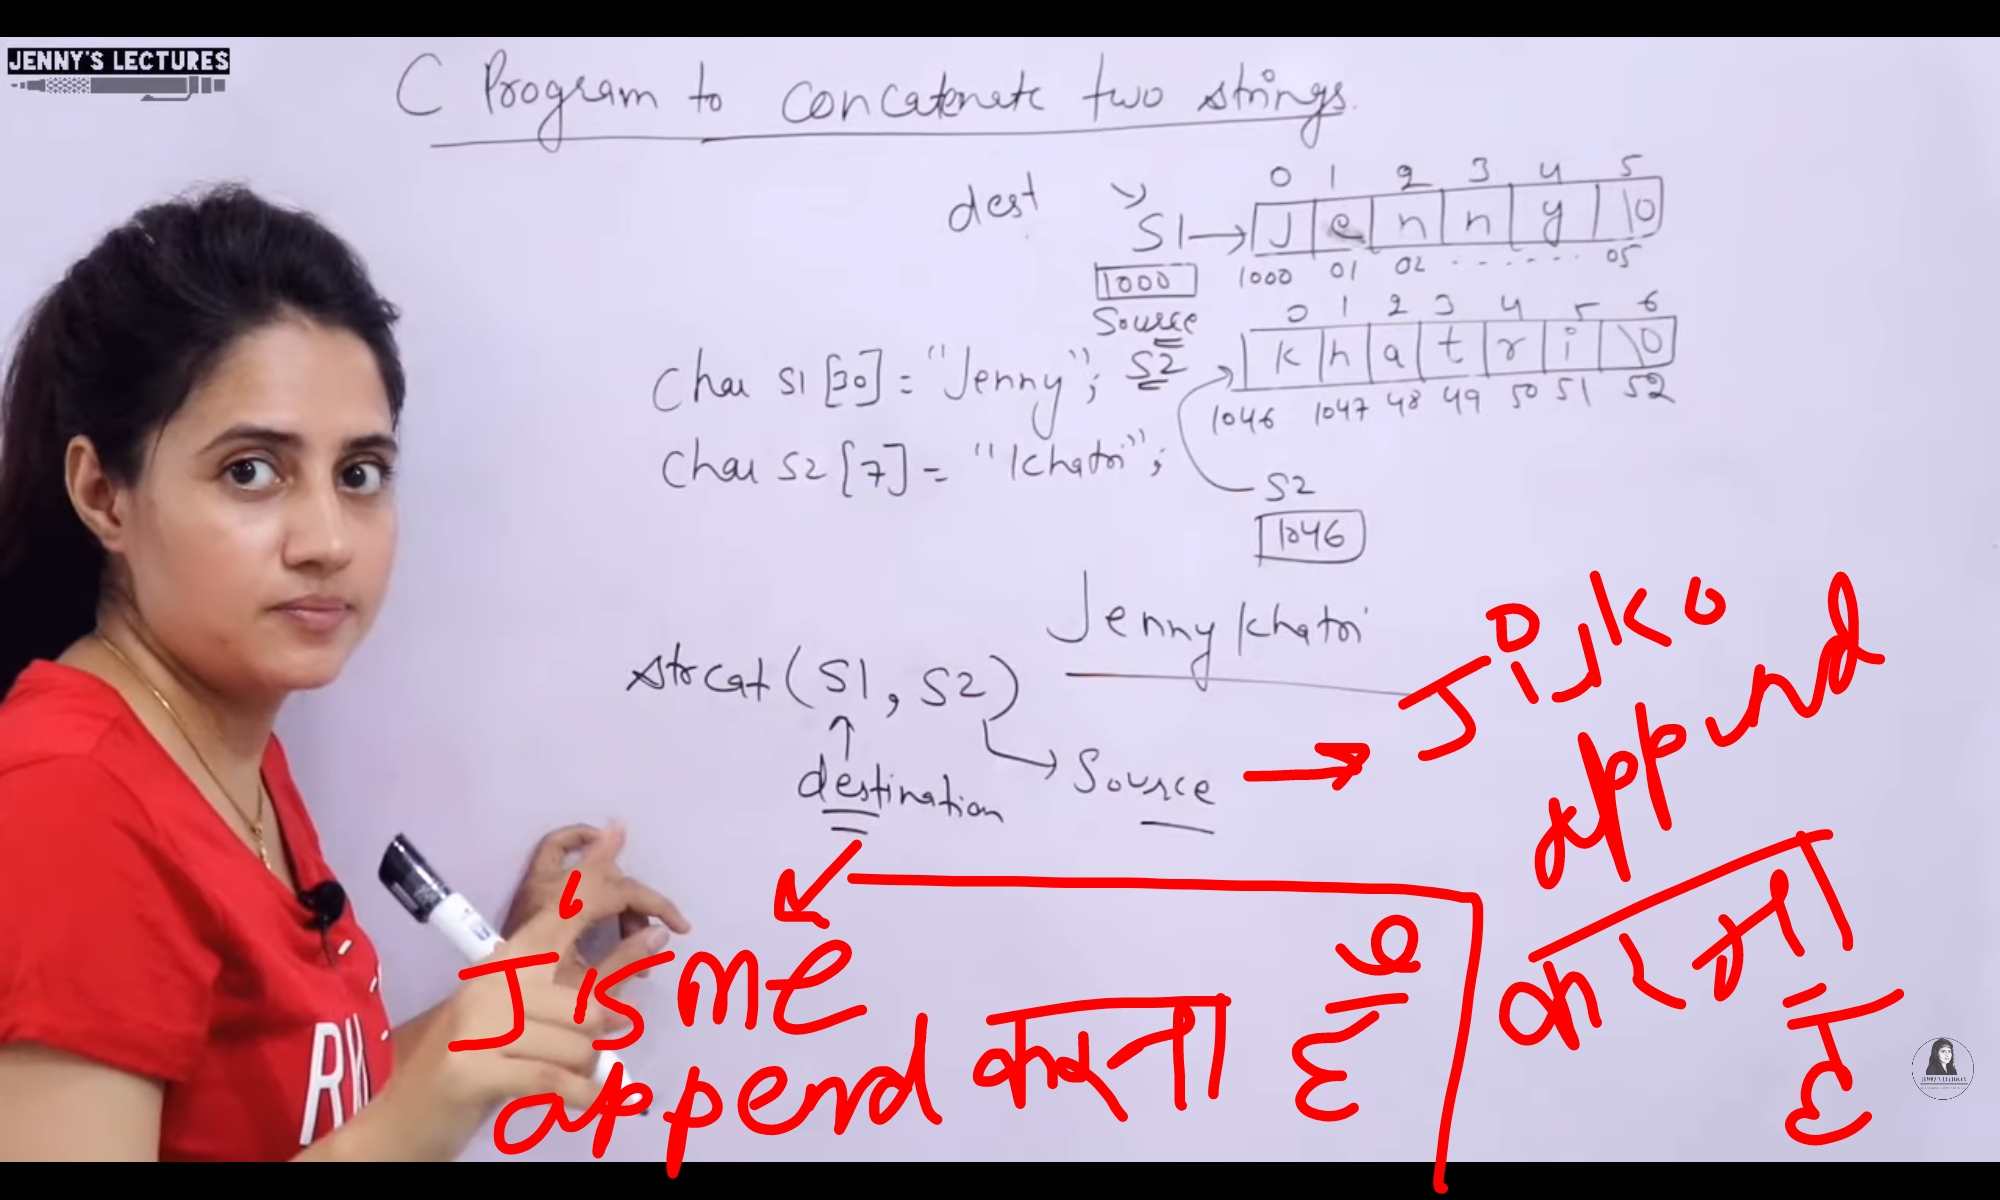 JENNY'S LECTURES
C Program to concatenate two strings.
dest
0 1 2 3 4 5
S1→ J e n n y \0
1000
1000 01 02 ------- 05
Source
0 1 2 3 4 5 6
S2 k h a t r i \0
1046 1047 48 49 50 51 52
Char S1[30] = "Jenny";
Char S2[7] = "Khatri";
S2
1046
Jenny Khatri
strcat(S1, S2)
destination
Source → Jisko
append
करना
है
Jisme
append करना है
JENNY'S LECTURES